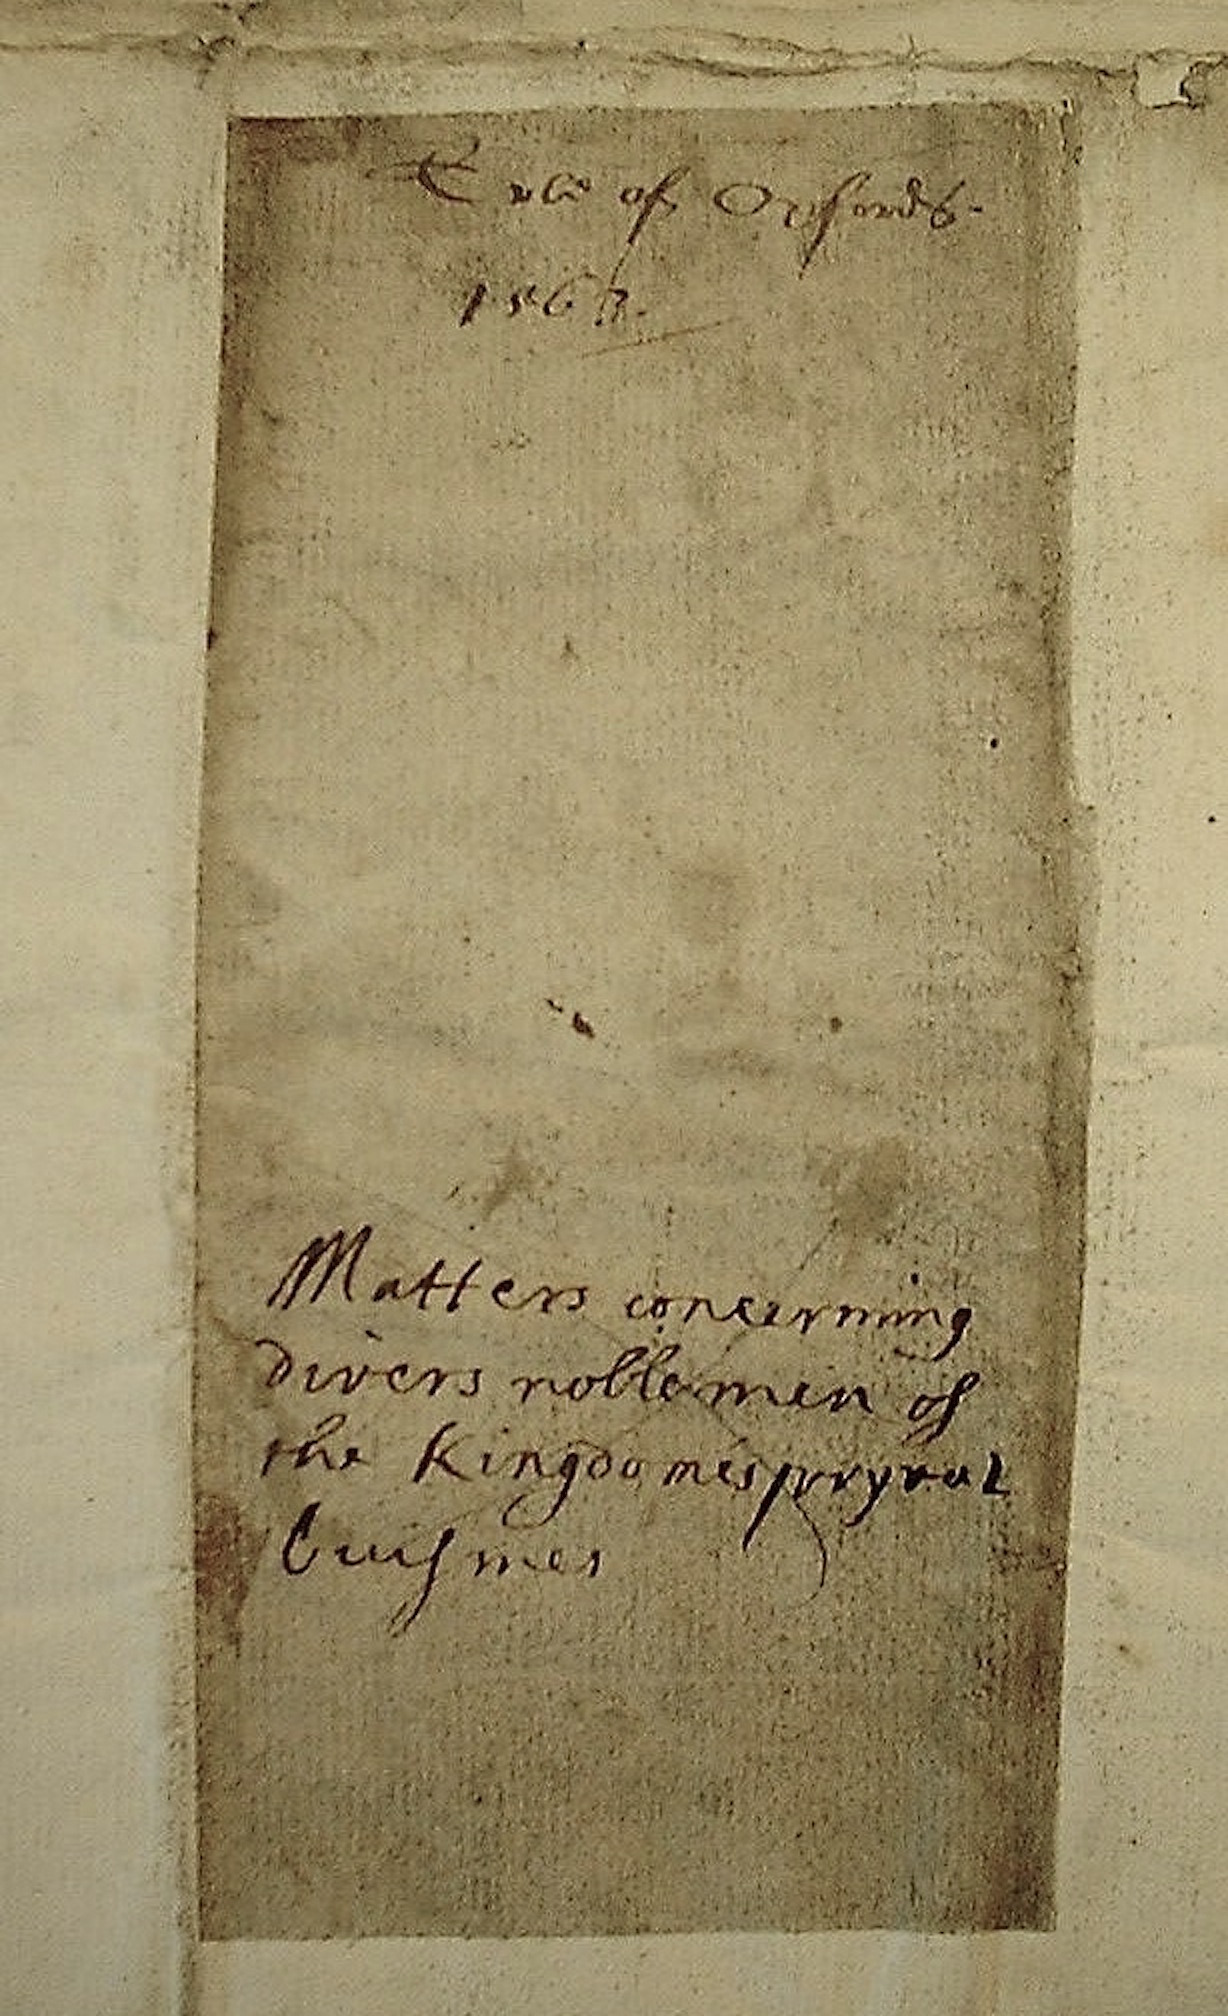 Erle of Oxfords.
1563.
Matters concerning
divers noblemen of
the Kingdomes pryvat